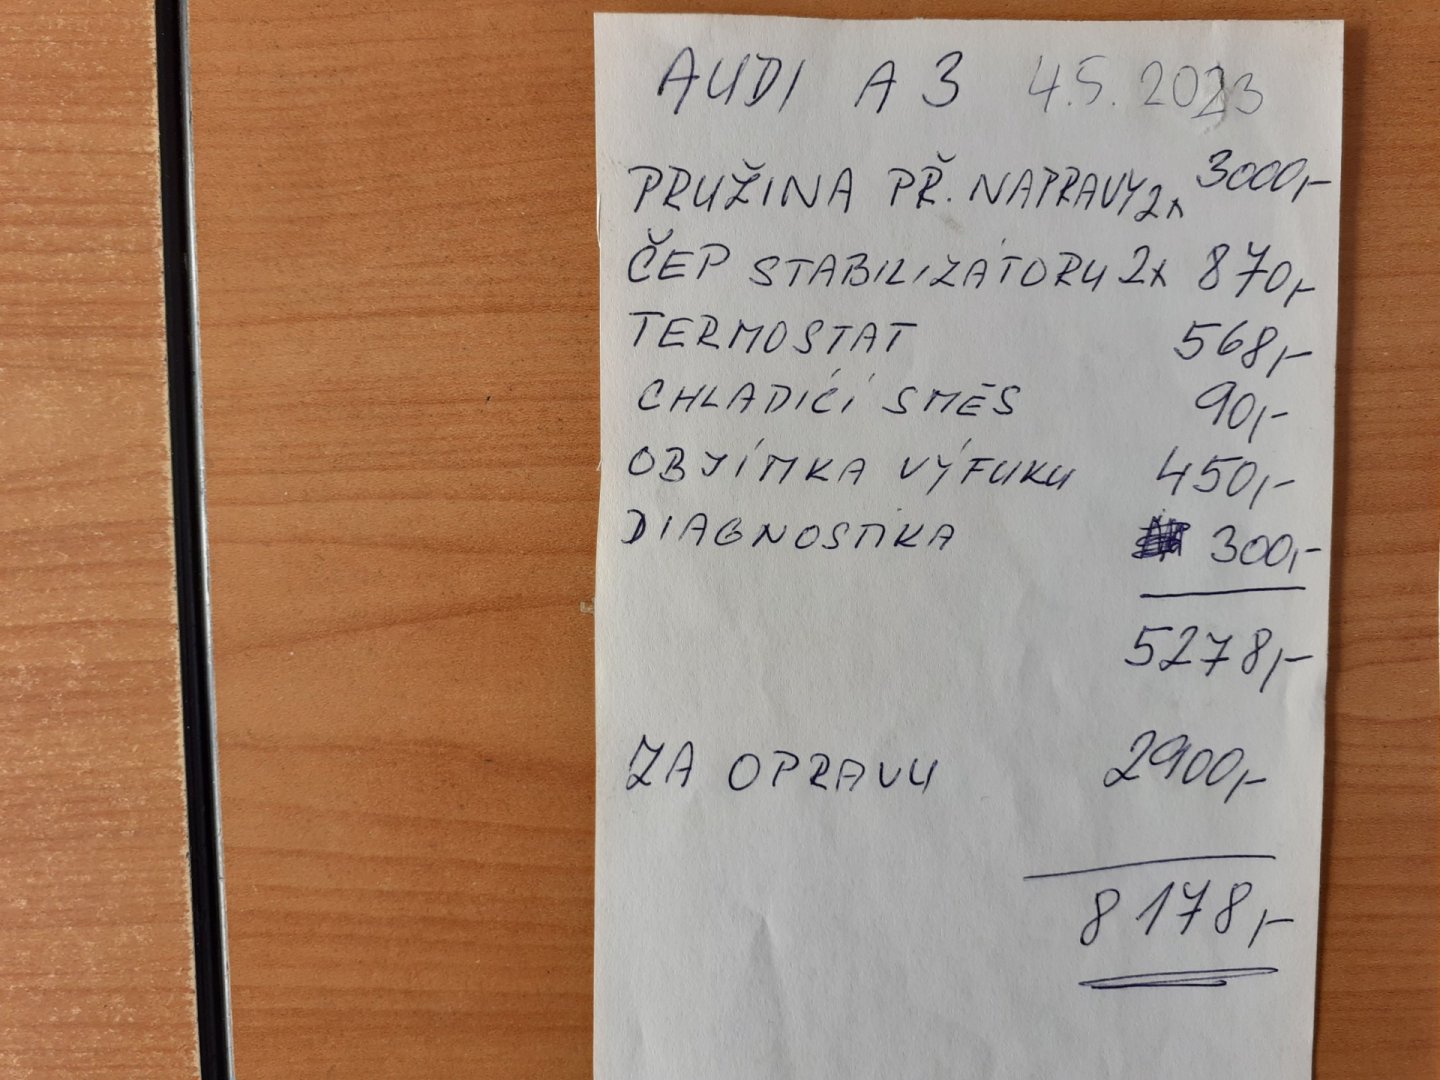 AUDI A3 4.5.2023
PRUŽINA PŘ. NAPRAVY 2x 3000,-
ČEP STABILIZÁTORU 2x 870,-
TERMOSTAT 568,-
CHLADÍCÍ SMĚS 90,-
OBJÍMKA VÝFUKU 450,-
DIAGNOSTIKA 300,-
5278,-
ZA OPRAVU 2900,-
8178,-